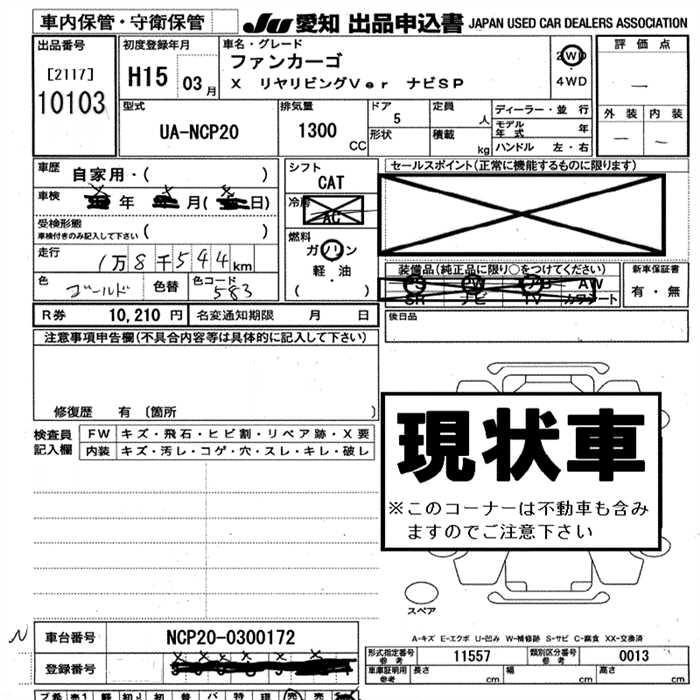 車内保管・守衛保管 JU 愛知 出品申込書 JAPAN USED CAR DEALERS ASSOCIATION
出品番号 初度登録年月 車名・グレード 評価点
[2117] H15 03月 ファンカーゴ 2WD
10103 X リヤリビングVer ナビSP 4WD —
型式 排気量 ドア 定員 ディーラー・並行 外装 内装
UA-NCP20 1300 CC 5 人 モデル年式 年 — —
形状 積載 kg ハンドル 左・右
車歴 自家用・( ) シフト セールスポイント(正常に機能するものに限ります)
CAT
車検 年 月( 日) 冷房 AC
受検形態 ( )
車検付きのみ記入して下さい
燃料
走行 1万8千544km ガソリン 装備品(純正品に限り○をつけてください) 新車保証書
軽・油 有・無
色 ゴールド 色替 色コード 583 ( ) SR ナビ TV AW カワシート
R券 10,210 円 名変通知期限 月 日 後日品
注意事項申告欄(不具合内容等は具体的に記入して下さい)
修復歴 有 〔箇所 〕
検査員 FW キズ・飛石・ヒビ割・リペア跡・X要
記入欄 内装 キズ・汚レ・コゲ・穴・スレ・キレ・破レ
現状車
※このコーナーは不動車も含み
ますのでご注意下さい
スペア
A-キズ E-エクボ U-凹み W-補修跡 S-サビ C-腐食 XX-交換済
N 車台番号 NCP20-0300172 形式指定番号 参考 11557 類別区分番号 参考 0013
登録番号 車庫証明用 参考 長さ cm 幅 cm 高さ cm